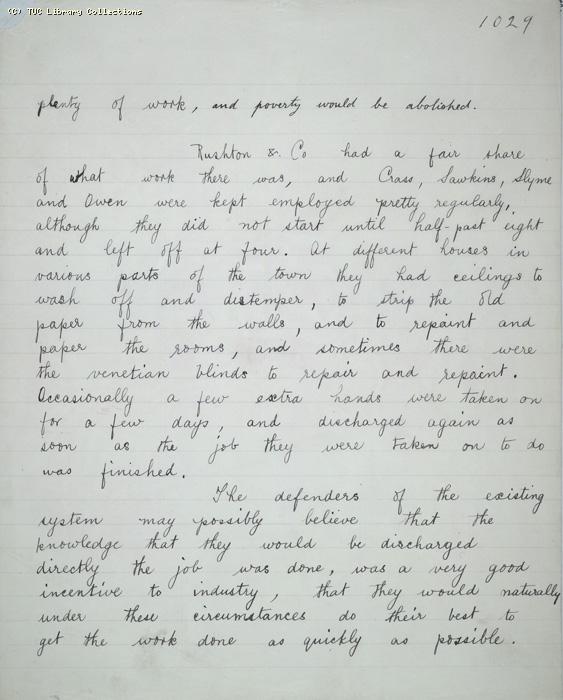 (C) TUC Library Collections
1029
plenty of work, and poverty would be abolished.
Rushton & Co had a fair share
of what work there was, and Crass, Sawkins, Slyme
and Owen were kept employed pretty regularly,
although they did not start until half-past eight
and left off at four. At different houses in
various parts of the town they had ceilings to
wash off and distemper, to strip the old
paper from the walls, and to repaint and
paper the rooms, and sometimes there were
the venetian blinds to repair and repaint.
Occasionally a few extra hands were taken on
for a few days, and discharged again as
soon as the job they were taken on to do
was finished.
The defenders of the existing
system may possibly believe that the
knowledge that they would be discharged
directly the job was done, was a very good
incentive to industry, that they would naturally
under these circumstances do their best to
get the work done as quickly as possible.